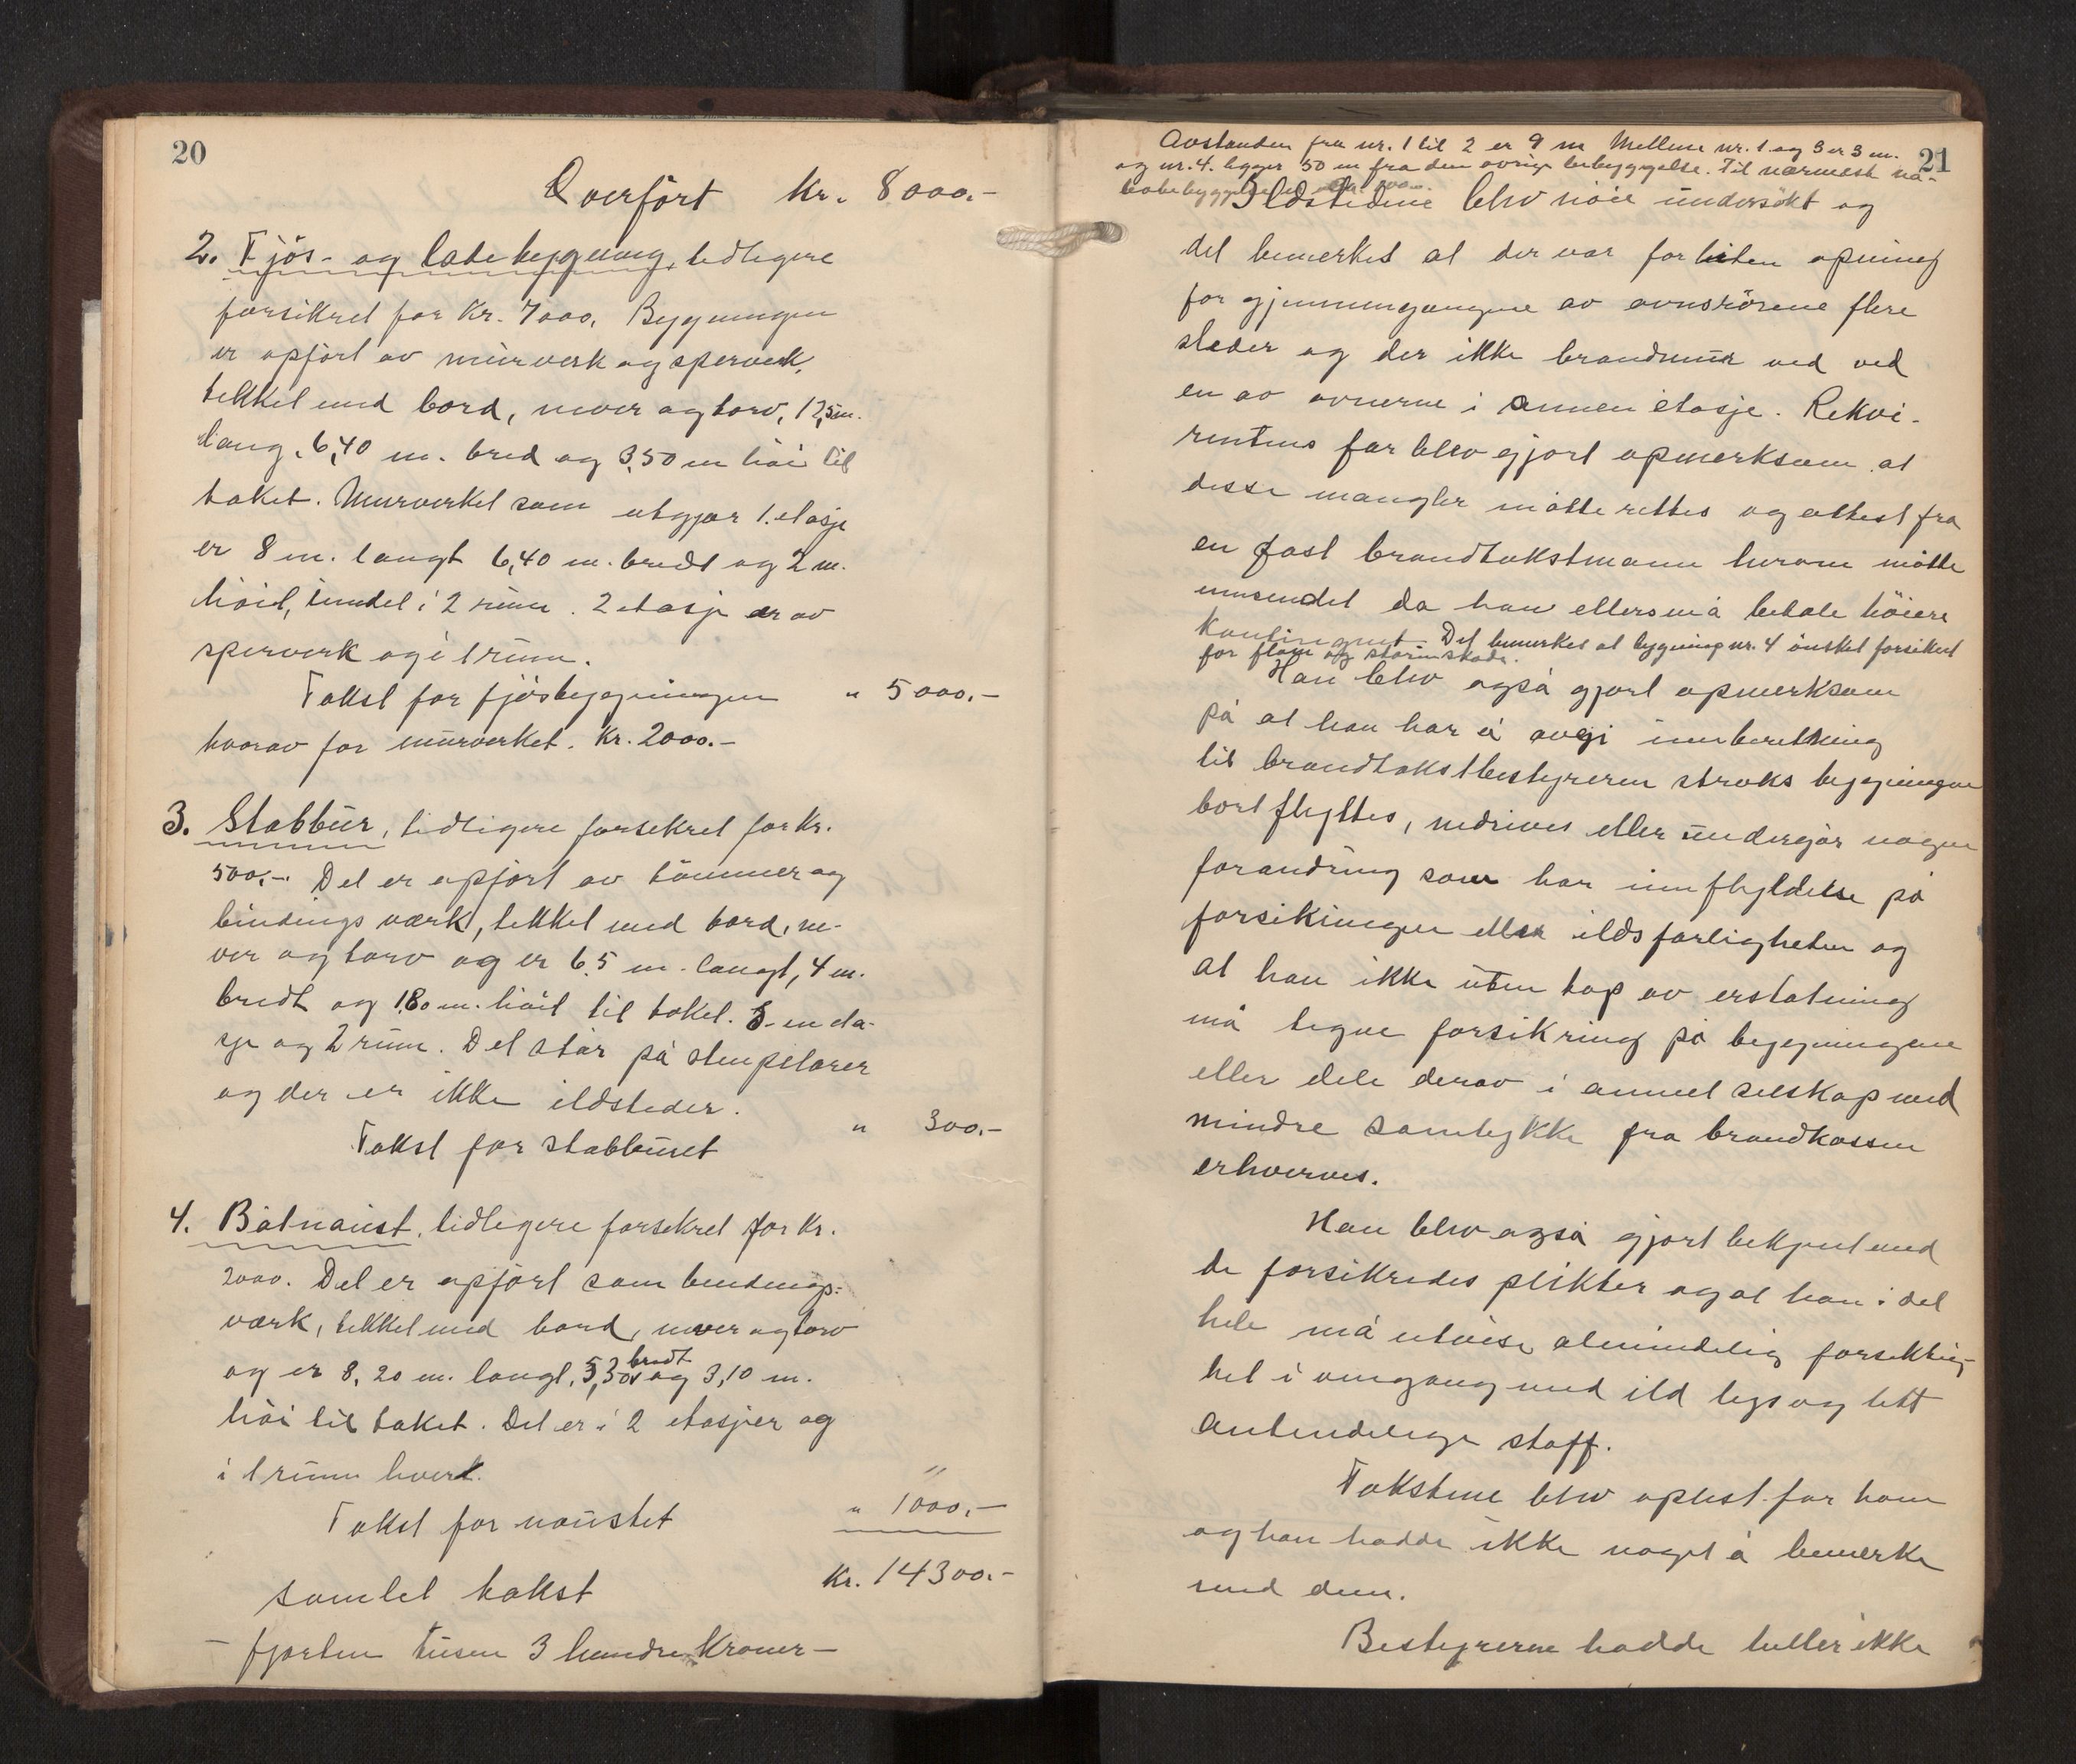 20
Overført Kr. 8000.-
2. Fjös- og ladebygning, tidligere
forsikret for Kr. 7000. Bygningen
er opført av murverk og sperverk,
tekket med bord, never og torv, 12,5 m.
lang, 6,40 m. bred og 3,50 m höi til
taket. Murverket som utgjør 1. etasje
er 8 m. langt 6,40 m. bredt og 2 m.
höit, inndel i 2 rum. 2 etasje er av
sperverk og i 1 rum.
Takst for fjösbygningen " 5000.-
hvorav for murverket. Kr. 2000.-
3. Stabbur, tidligere forsekret for Kr.
500.-. Det er opfört av tömmer og
bindings værk, tekket med bord, ne-
ver og torv og er 6,5 m. langt, 4 m.
bredt og 1,80 m. höit til taket. I en eta-
sje og 2 rum. Det står på stenpilarer
og der er ikke ildsteder.
Takst for stabburet " 300.-
4. Båtnaust, tidligere forsekret for Kr.
2000. Det er opfört som bindings-
værk, tekket med bord, never og torv
og er 8,20 m. langt, 5,30 bredt og 3,10 m.
höi til taket. Det er i 2 etasjer og
i 1 rum hvert.
Takst for naustet " 1000.-
samlet takst Kr. 14300.-
- fjorten tusen 3 hundre Kroner -
21
Avstanden fra nr. 1 til 2 er 9 m Mellem nr. 1 og 3 er 3 m.
og nr. 4. ligger 50 m fra den øvrige bebyggelse. Til nærmeste na-
bobebyggelse er
Ildstedene blev nöie undersökt og
det bemerkes at der var for liten åpning
for gjennemgangene av ovnsrörene flere
steder og der ikke brandmur ved ved
en av ovnerne i annen etasje. Rekvi-
rentens far blev gjort opmerksom at
disse mangler måtte rettes og attest fra
en fast brandtakstmann herom måtte
innsendet da han ellers må betale höiere
Kontingent. Det bemerkes at bygning nr. 4 önsket forsikert
for flom og stormskade.
Han blev også gjort opmerksom
på at han har å avgi innberetning
til brandtakstbestyreren straks bygningene
bortflyttes, nedrives eller undergår nogen
forandring som har innflydelse på
forsikringen eller ildsfarligheten og
at han ikke uten tap av erstatning
må tegne forsikring på bygningene
eller dele derav i annet selskap med
mindre samtykke fra brandkassen
erhverves.
Han blev også gjort bekjent med
de forsikredes plikter og at han i det
hele må utvise almindelig forsiktig-
het i omgang med ild lys og lett
antendelige stoff.
Takstene blev oplest for ham
og han hadde ikke noget å bemerke
med dem.
Bestyrerne hadde heller ikke